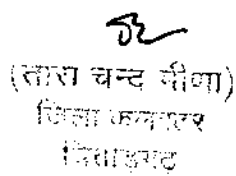 (तारा चन्द मीणा)
जिला कलक्टर
चित्तौड़गढ़